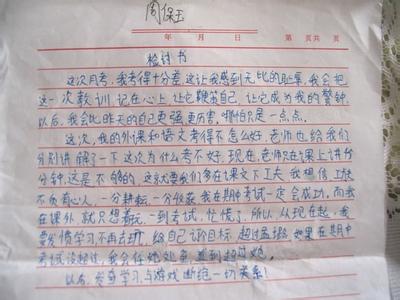 周保玉
年 月 日 第 页共 页
检讨书
这次月考,我考得十分差这让我感到无比的耻辱,我会把
这一次教训记在心上,让它鞭策自己,让它成为我的警钟
以后,我会比昨天的自己更强更厉害,哪怕只是一点点。
这次,我的外课和语文考得不怎么好,老师也给我们
分别讲解了一下这次为什么考不好,现在,老师只在课上讲
分钟,这是不够的,这就要我们多在课文下工夫,我想信工夫
不负有心人,一分耕耘,一分收获,我在期中考试一定会成功,而我
在课外就只想着玩,一到考试,忙慌了,所以,从现在起,我
要发愤学习,不再去玩,给自己订目标,超过孟璇,如果在期中
考试没超过,我会任她处置,直到超过她。
以后,发奋学习,与游戏断绝一切关系!